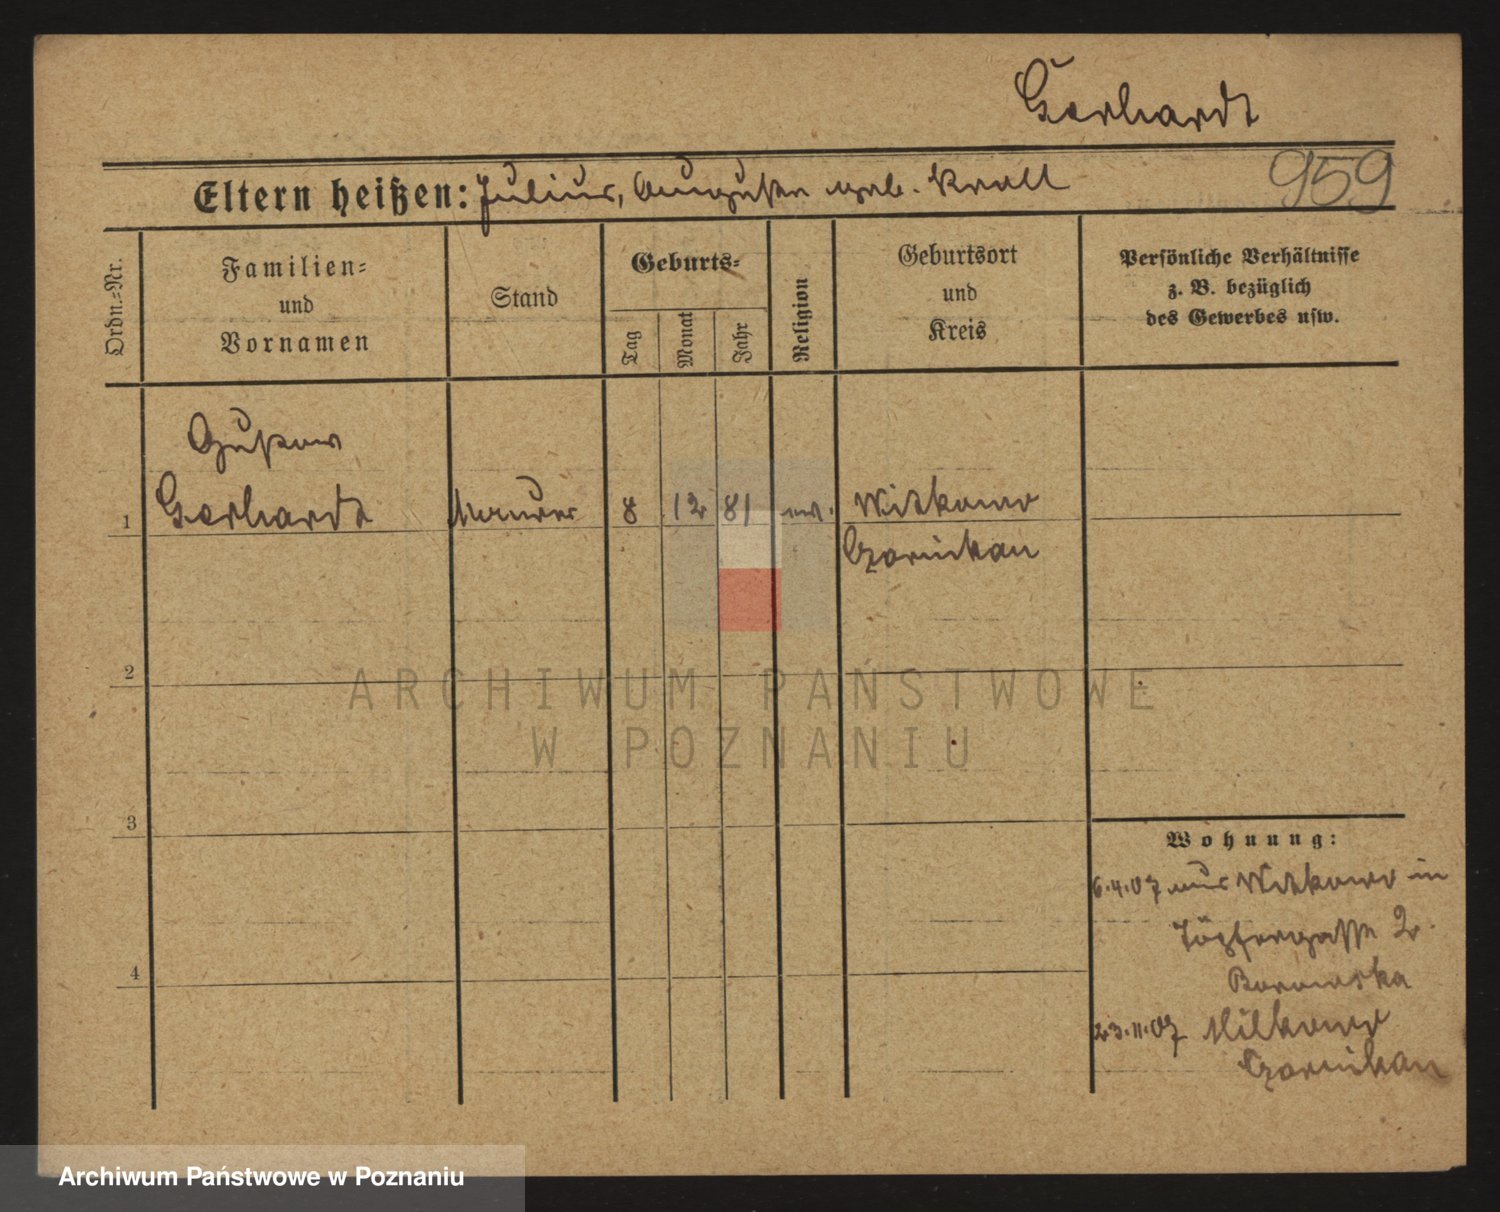 Gerhardt
959
Eltern heißen: Julius, Auguste geb. Krall
Ordn.=Nr.
Familien=
und
Vornamen
Stand
Geburts=
Tag
Monat
Jahr
Religion
Geburtsort
und
Kreis
Persönliche Verhältnisse
z. B. bezüglich
des Gewerbes usw.
Gustav
1 Gerhardt Maurer 8 12 81 ev. Mitkowo
Czarnikau
2
3
4
Wohnung:
6.4.07 aus in
Töpfergasse 2.
Borowska
23.11.07
Czarnikau
ARCHIWUM PAŃSTWOWE
W POZNANIU
Archiwum Państwowe w Poznaniu